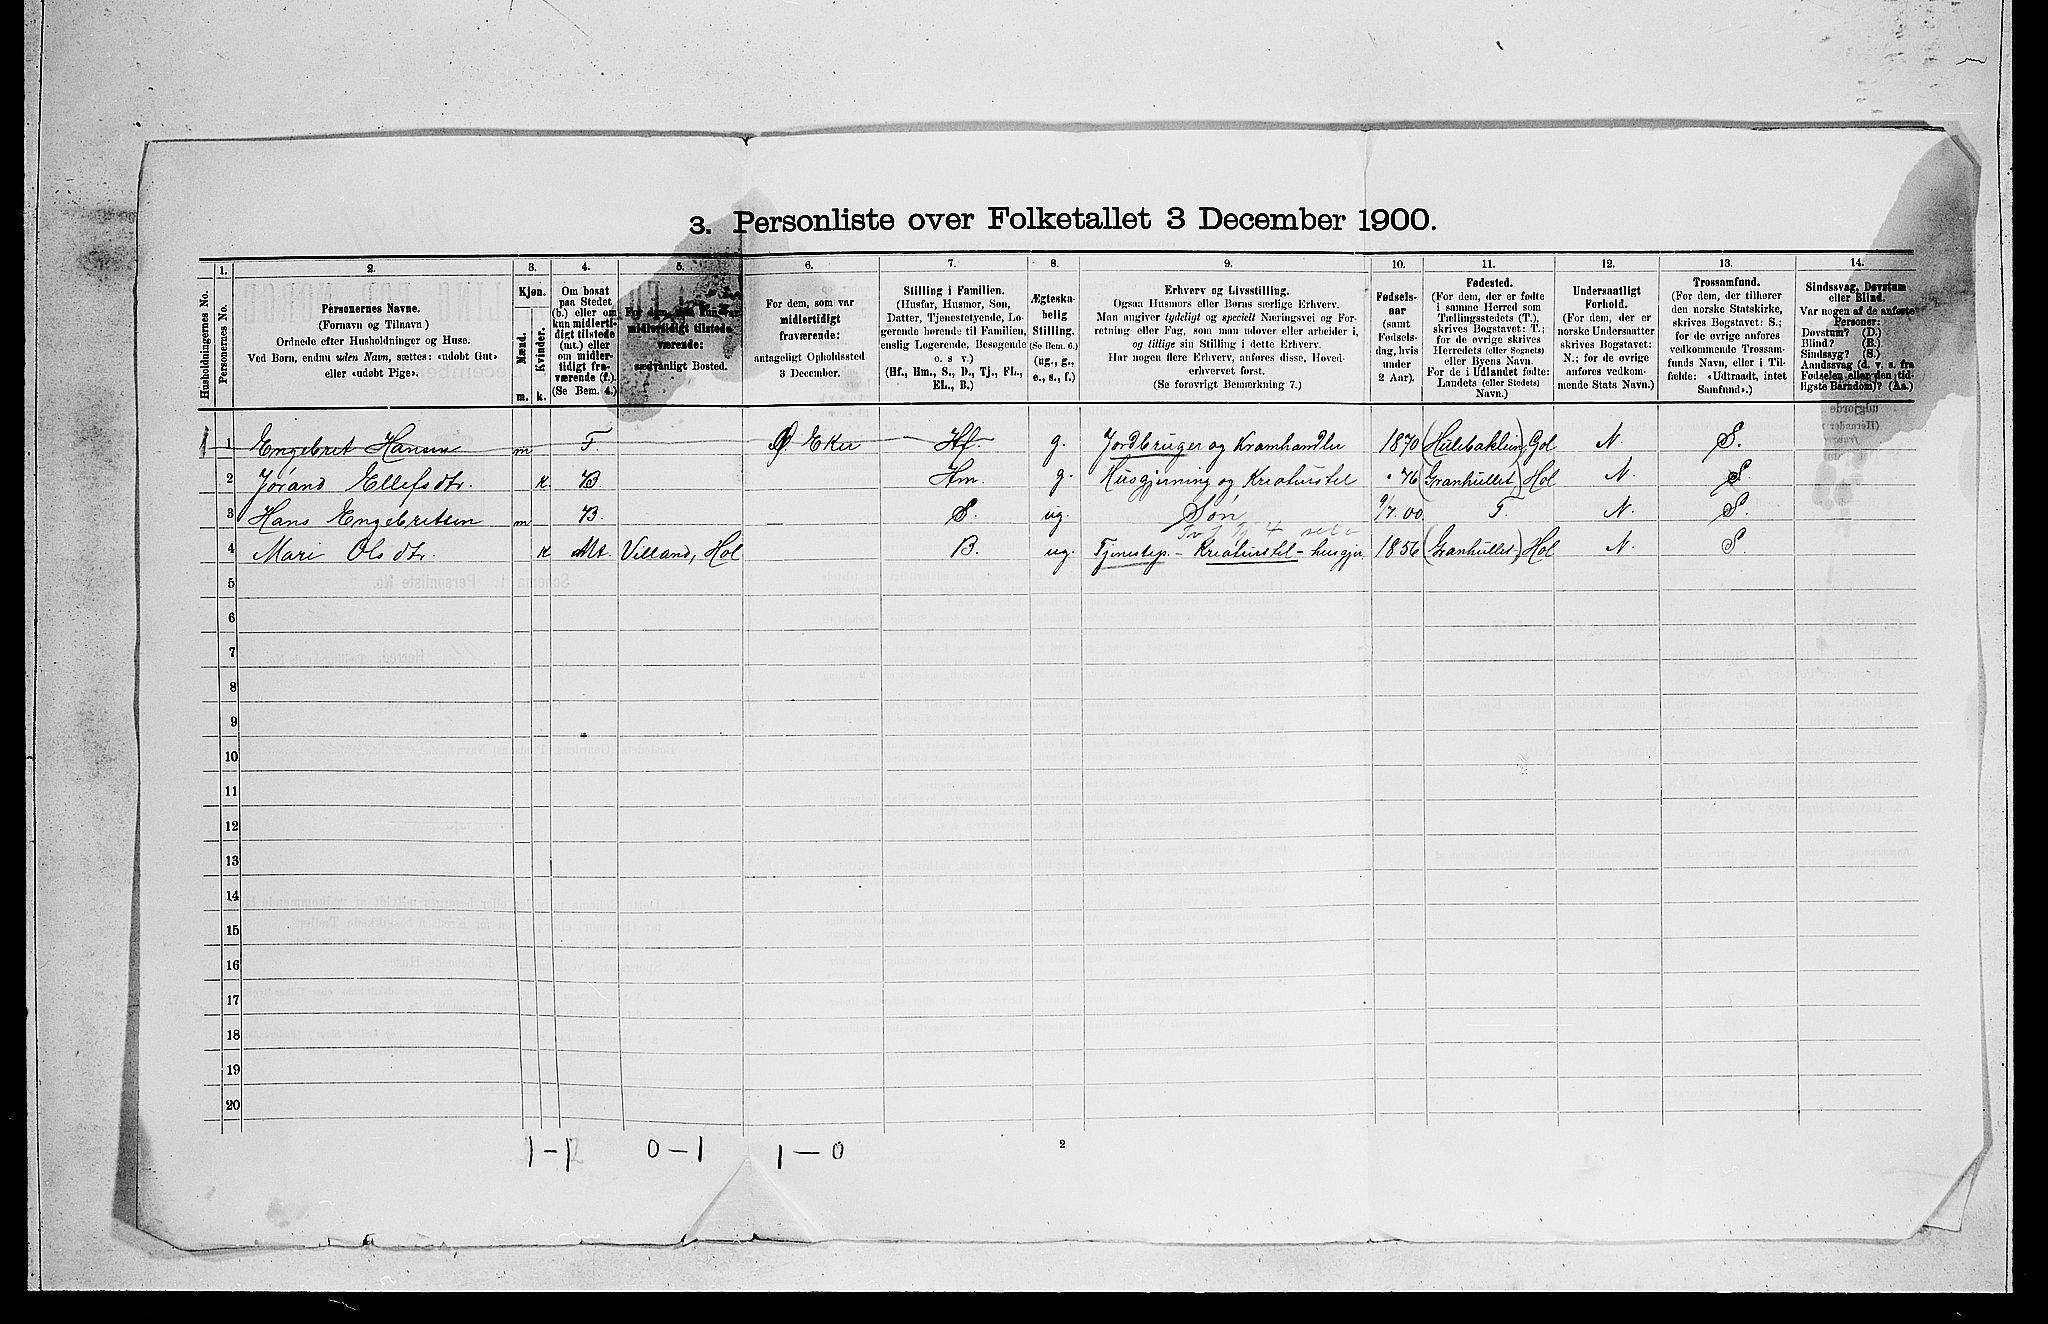 3. Personliste over Folketallet 3 December 1900.
Husholdningernes No.
1. Personernes No.
2. Personernes Navne. (Fornavn og Tilnavn.) Ordnede efter Husholdninger og Huse. Ved Børn, endnu uden Navn, sættes: «udøbt Gut» eller «udøbt Pige».
3. Kjøn. Mænd. m. Kvinder. k.
4. Om bosat paa Stedet (b.) eller om kun midlertidigt tilstede (mt.) eller om midlertidigt fraværende (f.) (Se Bem. 4.)
5. For dem, som kun var midlertidigt tilstedeværende: sædvanligt Bosted.
6. For dem, som var midlertidigt fraværende: antageligt Opholdssted 3 December.
7. Stilling i Familien. (Husfar, Husmor, Søn, Datter, Tjenestetyende, Logerende hørende til Familien, enslig Logerende, Besøgende o. s v.) (Hf., Hm., S., D., Tj., FL., EL., B.)
8. Ægteskabelig Stilling. (Se Bem. 6.) (ug., g., e., s., f.)
9. Erhverv og Livsstilling. Ogsaa Husmors eller Børns særlige Erhverv. Man angiver tydeligt og specielt Næringsvei og Forretning eller Fag, som man udøver eller arbeider i, og tillige sin Stilling i dette Erhverv. Har nogen flere Erhverv, anføres disse, Hovederhvervet først. (Se forøvrigt Bemærkning 7.)
10. Fødselsaar (samt Fødselsdag, hvis under 2 Aar).
11. Fødested. (For dem, der er fødte i samme Herred som Tællingsstedets (T.), skrives Bogstavet: T.; for de øvrige skrives Herredets (eller Sognets) eller Byens Navn. For de i Udlandet fødte: Landets (eller Stedets) Navn.)
12. Undersaatligt Forhold. (For dem, der er norske Undersaatter skrives Bogstavet: N.; for de øvrige anføres vedkommende Stats Navn.)
13. Trossamfund. (For dem, der tilhører den norske Statskirke, skrives Bogstavet: S.; for de øvrige anføres vedkommende Trossamfunds Navn, eller i Tilfælde: «Udtraadt, intet Samfund».)
14. Sindssvag, Døvstum eller Blind. Var nogen af de anførte Personer: Døvstum? (D.) Blind? (B.) Sindssyg? (S.) Aandssvag (d. v. s. fra Fødselen eller den tidligste Barndom)? (Aa.)
1 1 Engebret Hansen m F. Ø. Eker Hf. g. Jordbruger og Kramhandler 1870 Gol N. S.
2 Jørand Ellefsdtr. k B. Hm. g. Husgjerning og Kreaturstel " 76 (Granhullet) Hol N. S
3 Hans Engebretsen m B. S. ug. Søn 9/7.00. T. N. S.
4 Mari Olsdtr. k Mt. Villand, Hol B. ug. Tjenestep. - Kreaturstel - husgjer. 1856 (Granhullet) Hol N. S.
5
6
7
8
9
10
11
12
13
14
15
16
17
18
19
20
1-1 0-1 1-0 2